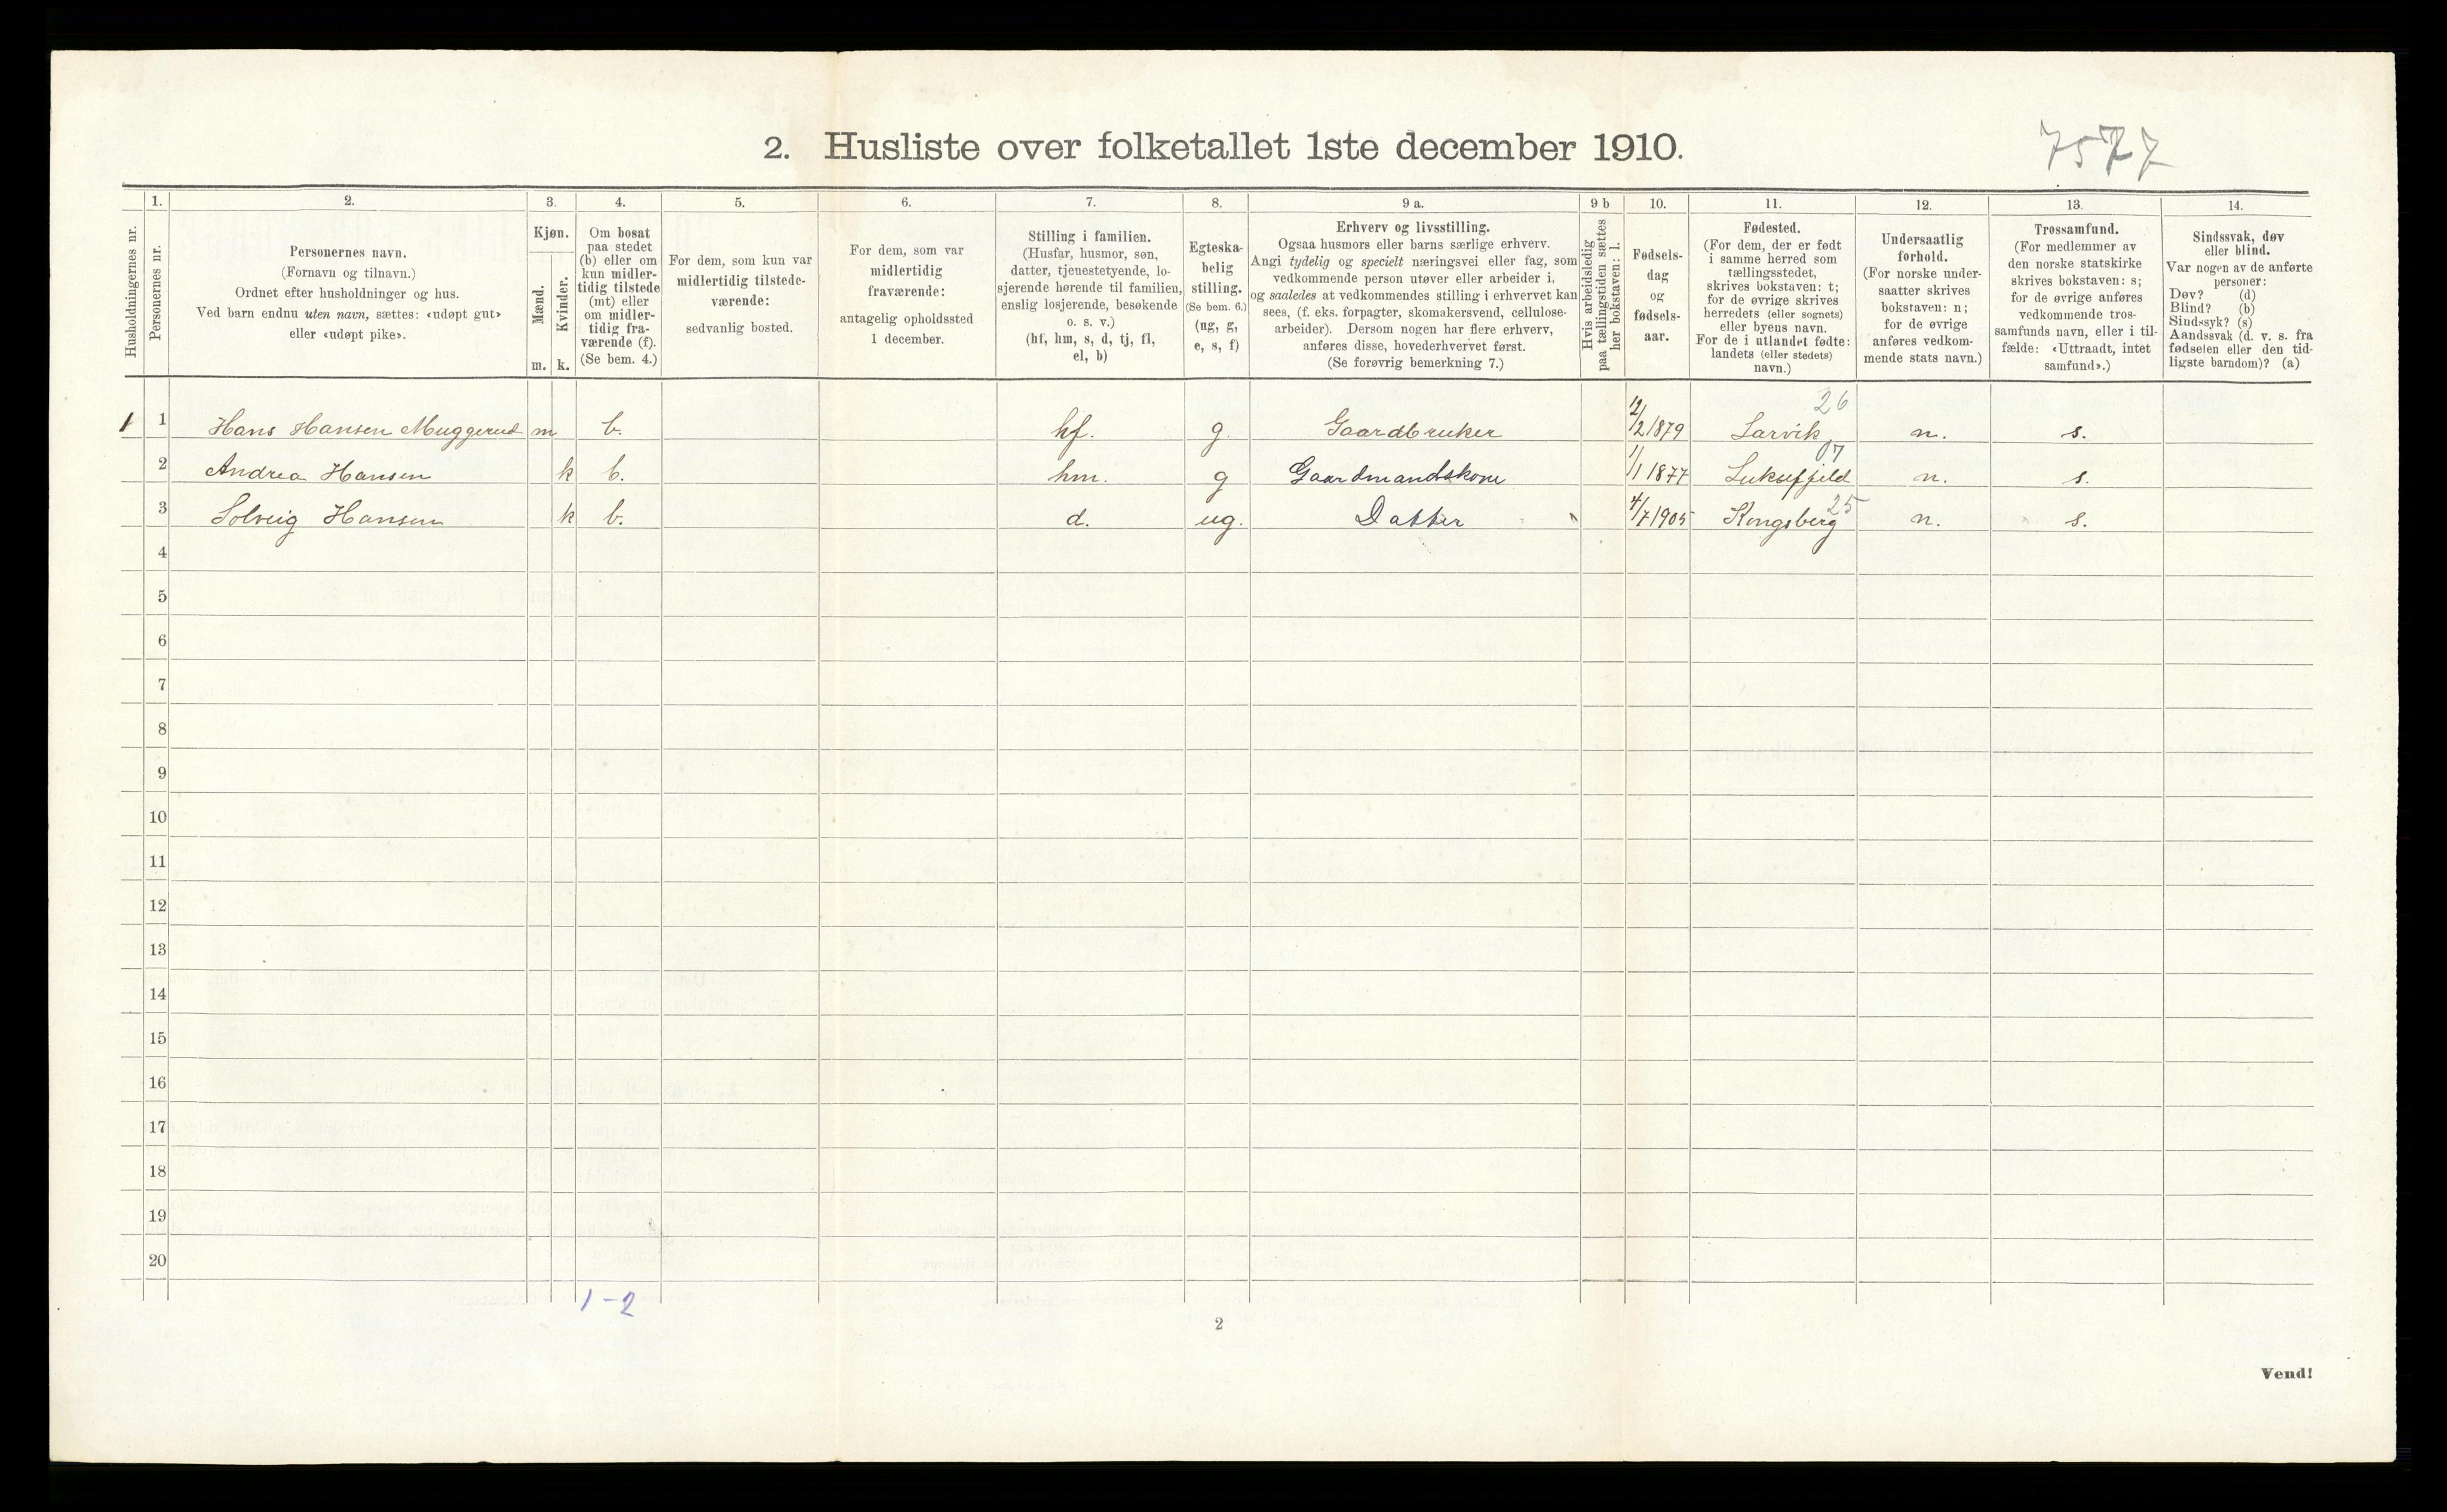 7577
2. Husliste over folketallet 1ste december 1910.
Husholdningernes nr.
1.
Personernes nr.
2.
Personernes navn.
(Fornavn og tilnavn.)
Ordnet efter husholdninger og hus.
Ved barn endnu uten navn, sættes: «udøpt gut»
eller «udøpt pike».
3.
Kjøn.
Mænd.
Kvinder.
m. k.
4.
Om bosat
paa stedet
(b) eller om
kun midler-
tidig tilstede
(mt) eller
om midler-
tidig fra-
værende (f).
(Se bem. 4.)
5.
For dem, som kun var
midlertidig tilstede-
værende:
sedvanlig bosted.
6.
For dem, som var
midlertidig
fraværende:
antagelig opholdssted
1 december.
7.
Stilling i familien.
(Husfar, husmor, søn,
datter, tjenestetyende, lo-
sjerende hørende til familien,
enslig losjerende, besøkende
o. s. v.)
(hf, hm, s, d, tj, fl,
el, b)
8.
Egteska-
belig
stilling.
(Se bem. 6.)
(ug, g,
e, s, f)
9 a.
Erhverv og livsstilling.
Ogsaa husmors eller barns særlige erhverv.
Angi tydelig og specielt næringsvei eller fag, som
vedkommende person utøver eller arbeider i,
og saaledes at vedkommendes stilling i erhvervet kan
sees, (f. eks. forpagter, skomakersvend, cellulose-
arbeider). Dersom nogen har flere erhverv,
anføres disse, hovederhvervet først.
(Se forøvrig bemerkning 7.)
9 b
Hvis arbeidsledig
paa tællingstiden sættes
her bokstaven: l.
10.
Fødsels-
dag
og
fødsels-
aar.
11.
Fødested.
(For dem, der er født
i samme herred som
tællingsstedet,
skrives bokstaven: t;
for de øvrige skrives
herredets (eller sognets)
eller byens navn.
For de i utlandet fødte:
landets (eller stedets)
navn.)
12.
Undersaatlig
forhold.
(For norske under-
saatter skrives
bokstaven: n;
for de øvrige
anføres vedkom-
mende stats navn.)
13.
Trossamfund.
(For medlemmer av
den norske statskirke
skrives bokstaven: s;
for de øvrige anføres
vedkommende tros-
samfunds navn, eller i til-
fælde: «Uttraadt, intet
samfund».)
14.
Sindssvak, døv
eller blind.
Var nogen av de anførte
personer:
Døv? (d)
Blind? (b)
Sindssyk? (s)
Aandssvak (d. v. s. fra
fødselen eller den tid-
ligste barndom)? (a)
26
1 1 Hans Hansen Muggerud m b. hf. g. Gaardbruker 12/2 1879 Larvik n. s.
07
2 Andrea Hansen k b. hm. g Gaardmandskone 1/1 1877 Luksefjeld n. s.
25
3 Solveig Hansen k b. d. ug. Datter 4/7 1905 Kongsberg n. s.
4
5
6
7
8
9
10
11
12
13
14
15
16
17
18
19
20
1-2
2
Vend!